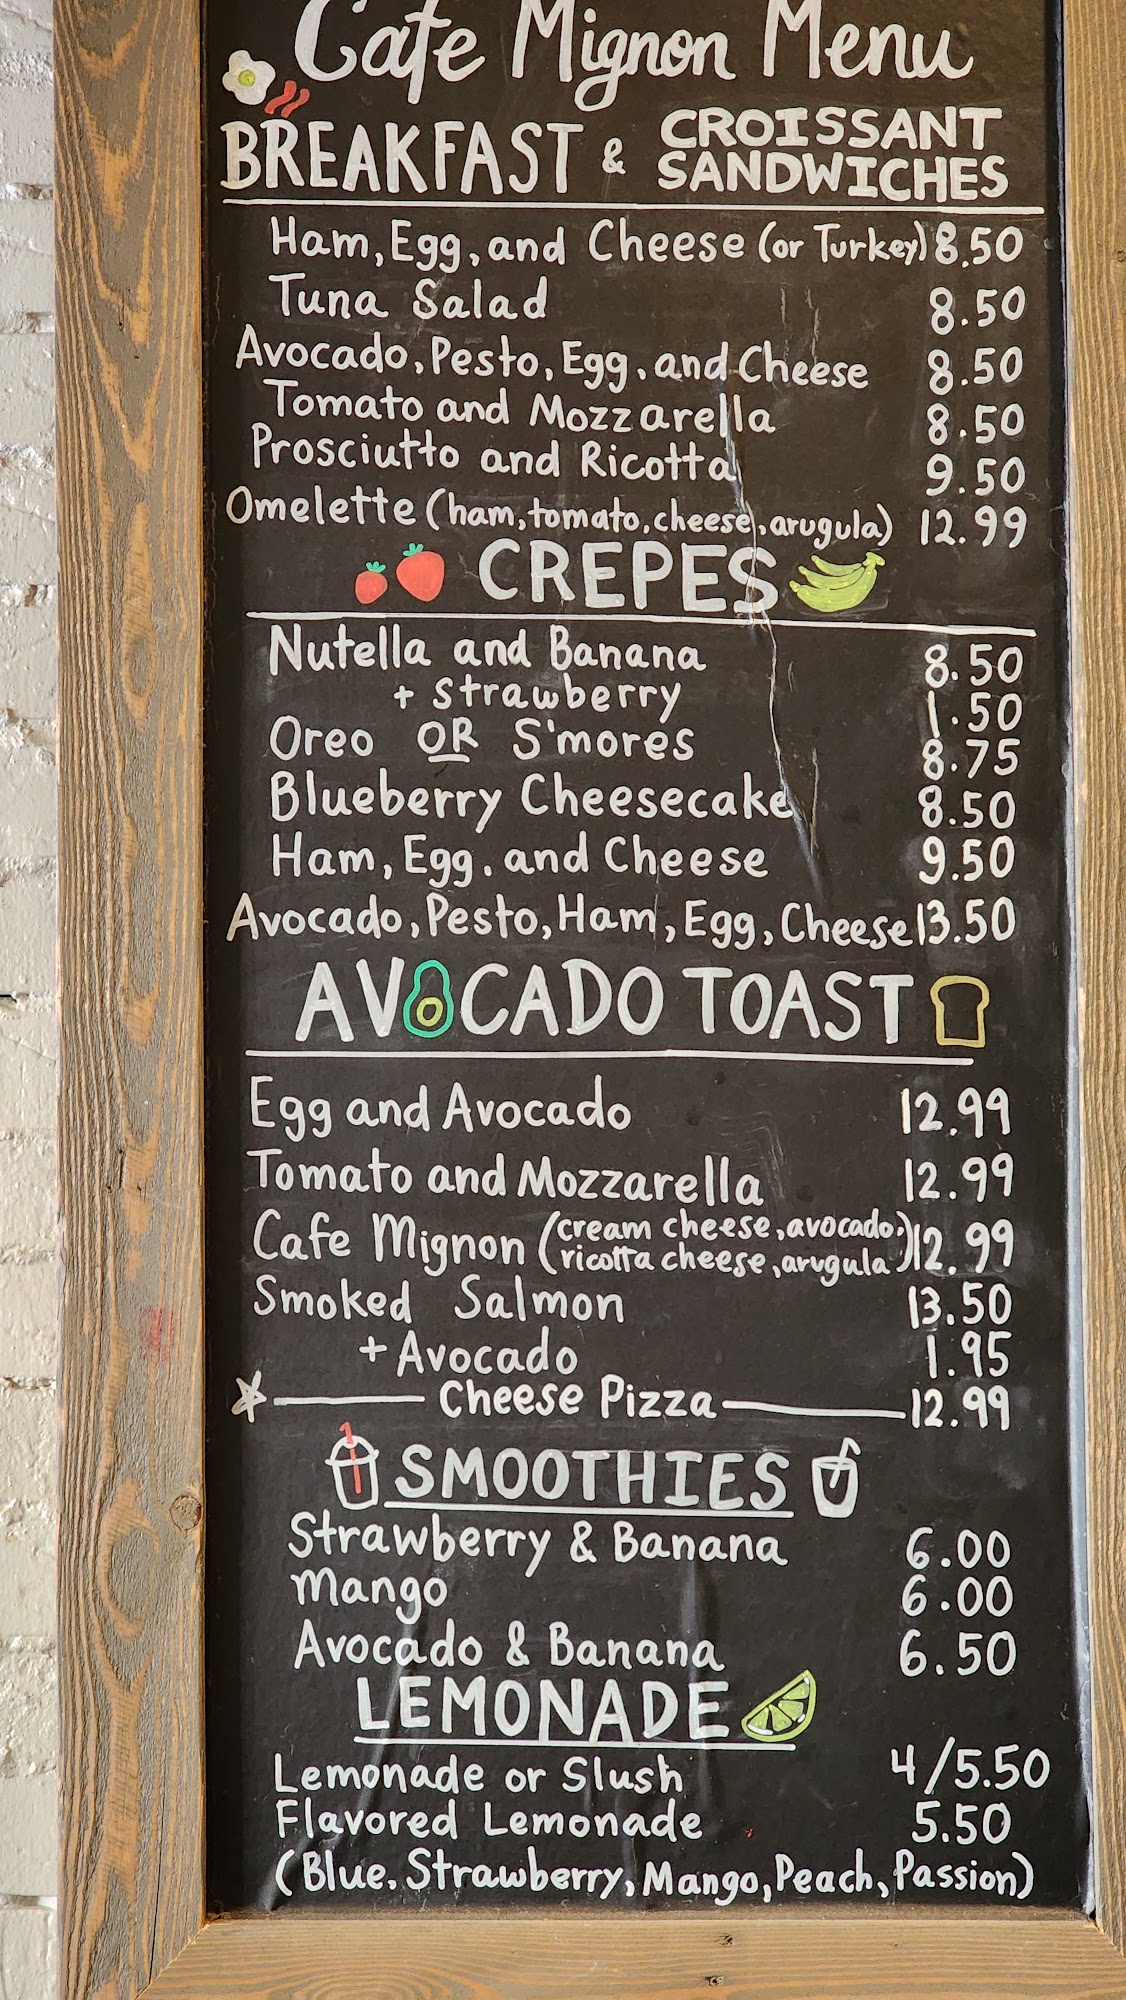 Cafe Mignon Menu
BREAKFAST & CROISSANT SANDWICHES
Ham, Egg, and Cheese (or Turkey) 8.50
Tuna Salad 8.50
Avocado, Pesto, Egg, and Cheese 8.50
Tomato and Mozzarella 8.50
Prosciutto and Ricotta 9.50
Omelette (ham, tomato, cheese, arugula) 12.99
CREPES
Nutella and Banana 8.50
+ strawberry 1.50
Oreo OR S'mores 8.75
Blueberry Cheesecake 8.50
Ham, Egg, and Cheese 9.50
Avocado, Pesto, Ham, Egg, Cheese 13.50
AVOCADO TOAST
Egg and Avocado 12.99
Tomato and Mozzarella 12.99
Cafe Mignon (cream cheese, avocado, ricotta cheese, arugula) 12.99
Smoked Salmon 13.50
+ Avocado 1.95
Cheese Pizza 12.99
SMOOTHIES
Strawberry & Banana 6.00
Mango 6.00
Avocado & Banana 6.50
LEMONADE
Lemonade or Slush 4/5.50
Flavored Lemonade 5.50
(Blue, Strawberry, Mango, Peach, Passion)